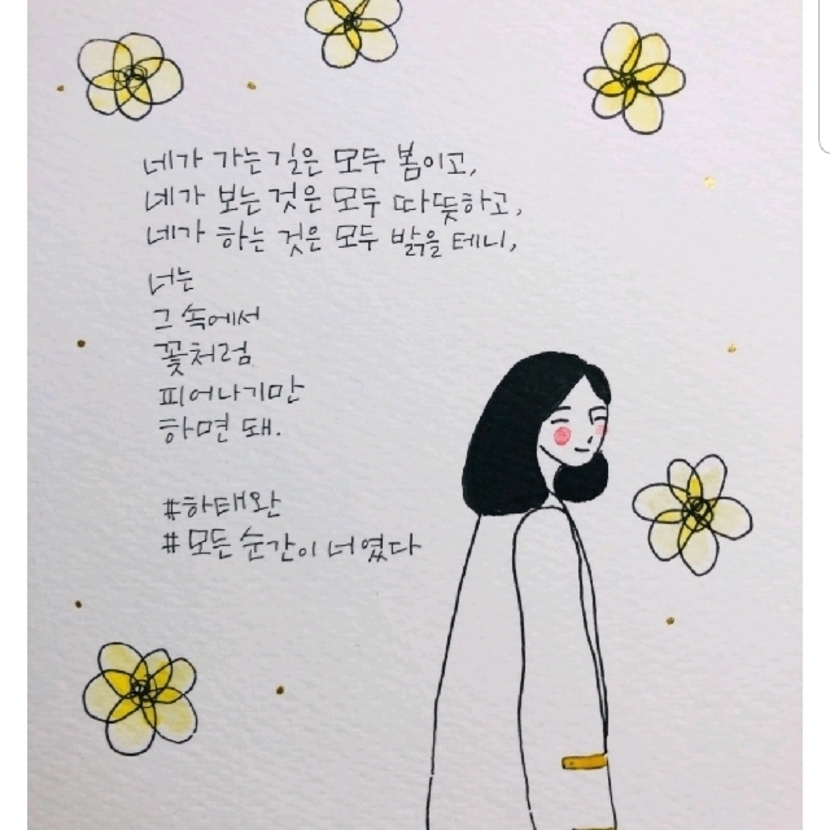 네가 가는길은 모두 봄이고,
네가 보는 것은 모두 따뜻하고,
네가 하는 것은 모두 밝을 테니,
너는
그 속에서
꽃처럼
피어나기만
하면 돼.
#하태완
#모든 순간이 너였다